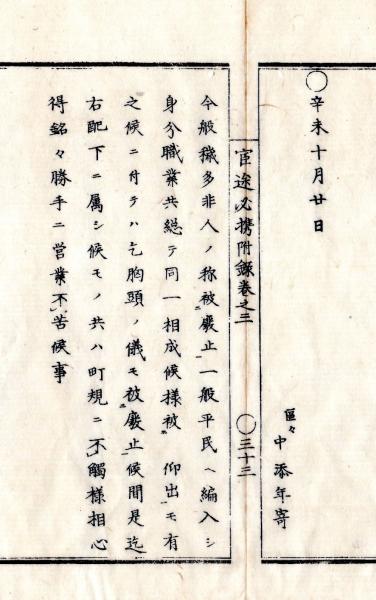 〇辛未十月廿日
區々
中添年寄
官途必携附錄卷之三
〇三十三
今般穢多非人ノ称被廢止一般平民ヘ編入シ
身分職業共総テ同一相成候様被 仰出モ有
之候ニ付テハ乞胸頭ノ儀モ被廢止候間是迄
右配下ニ属シ候モノ共ハ町規ニ不觸様相心
得銘々勝手ニ営業不苦候事